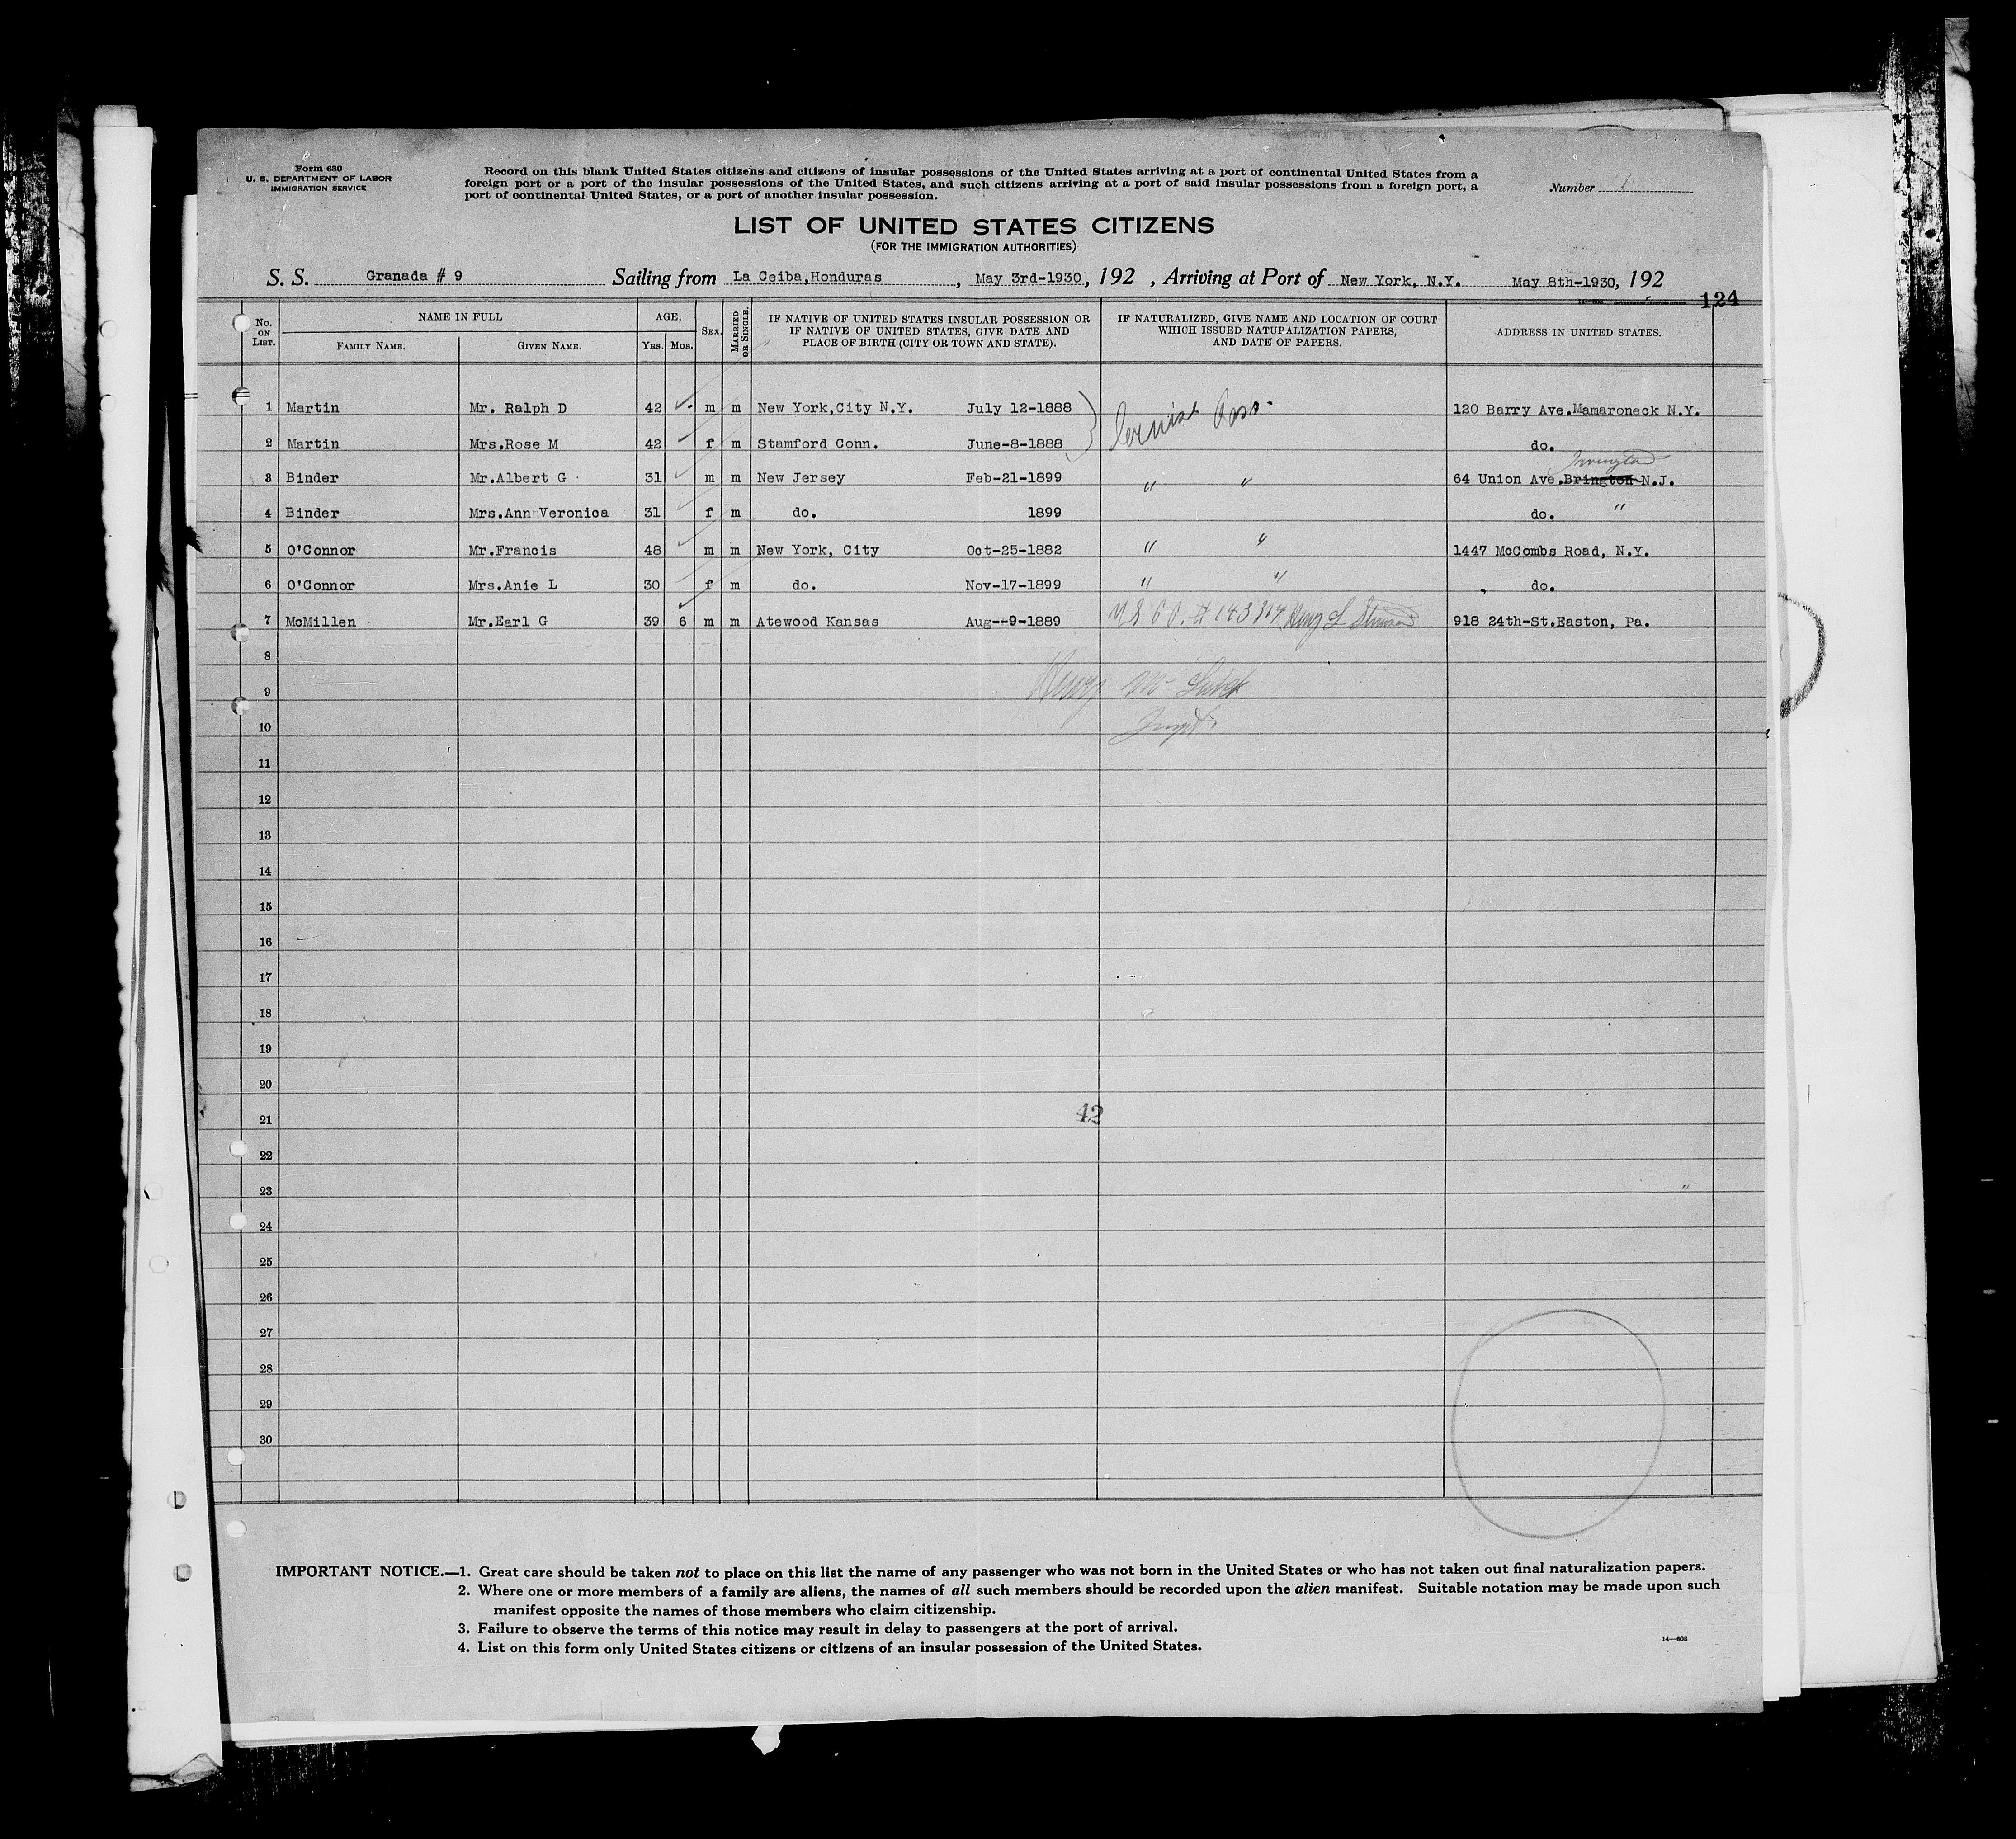 Form 630
U. S. DEPARTMENT OF LABOR
IMMIGRATION SERVICE
Record on this blank United States citizens and citizens of insular possessions of the United States arriving at a port of continental United States from a
foreign port or a port of the insular possessions of the United States, and such citizens arriving at a port of said insular possessions from a foreign port, a
port of continental United States, or a port of another insular possession.
Number 1
LIST OF UNITED STATES CITIZENS
(FOR THE IMMIGRATION AUTHORITIES)
S. S. Granada # 9 Sailing from La Ceiba,Honduras , May 3rd-1930, 192 , Arriving at Port of New York, N.Y. May 8th-1930, 192
124
No. ON LIST. NAME IN FULL AGE. SEX. MARRIED OR SINGLE. IF NATIVE OF UNITED STATES INSULAR POSSESSION OR IF NATIVE OF UNITED STATES, GIVE DATE AND PLACE OF BIRTH (CITY OR TOWN AND STATE). IF NATURALIZED, GIVE NAME AND LOCATION OF COURT WHICH ISSUED NATUPALIZATION PAPERS, AND DATE OF PAPERS. ADDRESS IN UNITED STATES.
FAMILY NAME. GIVEN NAME. YRS. MOS.
1 Martin Mr. Ralph D 42 m m New York,City N.Y. July 12-1888 Cruise Pass. 120 Barry Ave.Mamaroneck N.Y.
2 Martin Mrs.Rose M 42 f m Stamford Conn. June-8-1888 do.
Irvington
3 Binder Mr.Albert G 31 m m New Jersey Feb-21-1899 " " 64 Union Ave.Brington N.J.
4 Binder Mrs.Ann Veronica 31 f m do. 1899 do. "
5 O'Connor Mr.Francis 48 m m New York, City Oct-25-1882 " " 1447 McCombs Road, N.Y.
6 O'Connor Mrs.Anie L 30 f m do. Nov-17-1899 " " do.
7 McMillen Mr.Earl G 39 6 m m Atewood Kansas Aug--9-1889 Henry L Stimson 918 24th-St.Easton, Pa.
8
9
10
Inspt.
11
12
13
14
15
16
17
18
19
20
21
42
22
23
24
25
26
27
28
29
30
IMPORTANT NOTICE.—1. Great care should be taken not to place on this list the name of any passenger who was not born in the United States or who has not taken out final naturalization papers.
2. Where one or more members of a family are aliens, the names of all such members should be recorded upon the alien manifest. Suitable notation may be made upon such
manifest opposite the names of those members who claim citizenship.
3. Failure to observe the terms of this notice may result in delay to passengers at the port of arrival.
4. List on this form only United States citizens or citizens of an insular possession of the United States.
14—608